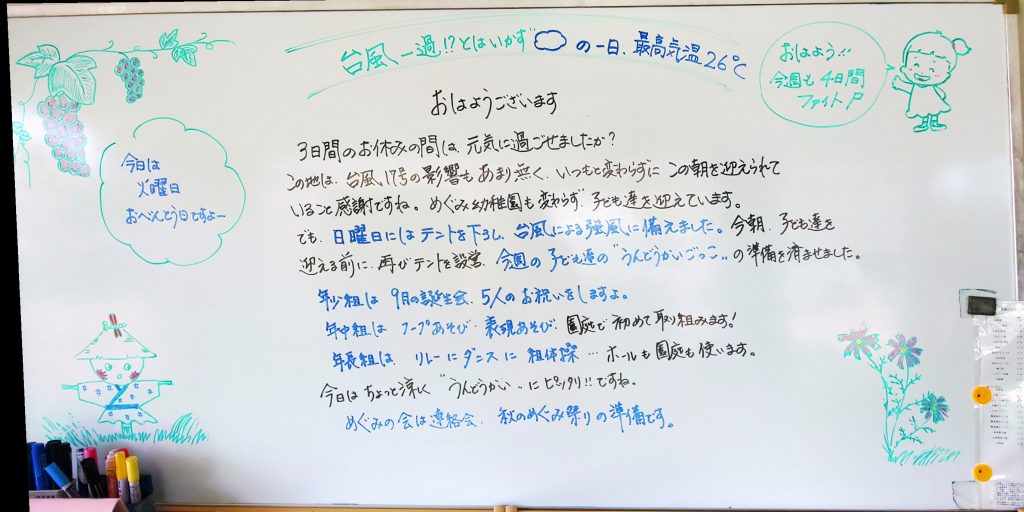 台風一過!?とはいかず の一日. 最高気温26℃
おはよう!!
今週も4日間
ファイト
おはようございます
今日は
火曜日
おべんとう日ですよー
3日間のお休みの間は、元気に過ごせましたか?
この地は、台風17号の影響もあまり無く、いつもと変わらずにこの朝を迎えられて
いること感謝ですね。めぐみ幼稚園も変わらず、子ども達を迎えています。
でも、日曜日にはテントを下ろし、台風による強風に備えました。今朝、子ども達を
迎える前に、再びテントを設営、今週の子ども達の"うんどうかいごっこ"の準備を済ませました。
年少組は 9月の誕生会、5人のお祝いをしますよ。
年中組は フープあそび、表現あそび、園庭で初めて取り組みます!
年長組は、リレーにダンスに 組体操…ホールも園庭も使います。
今日はちょっと涼しく "うんどうかい" にピッタリ!!ですね。
めぐみの会は連絡会、秋のめぐみ祭りの準備です。